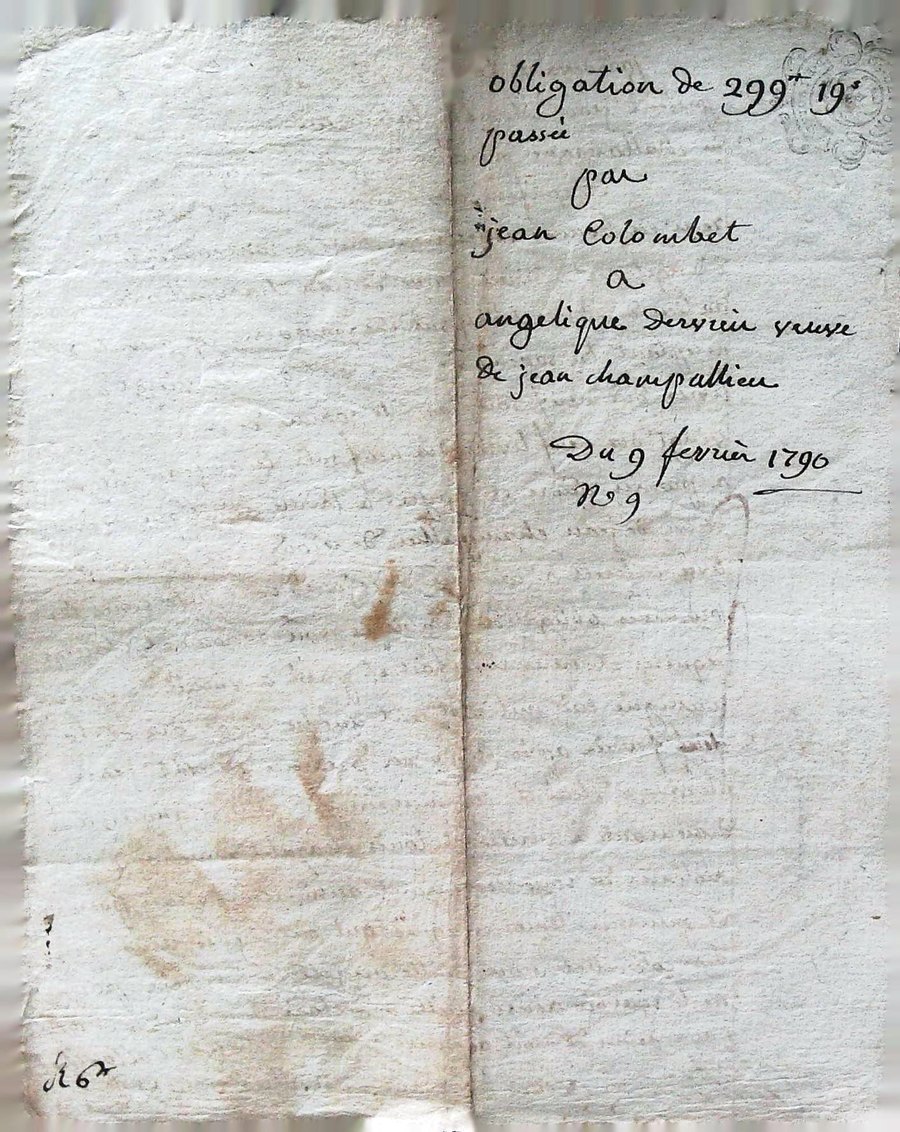 obligation de 299ᵗᵗ 19ˢ
passée
par
jean Colombet
a
angelique dervieu veuve
de jean champallieu
Du 9 fevrier 1790
Nº 9